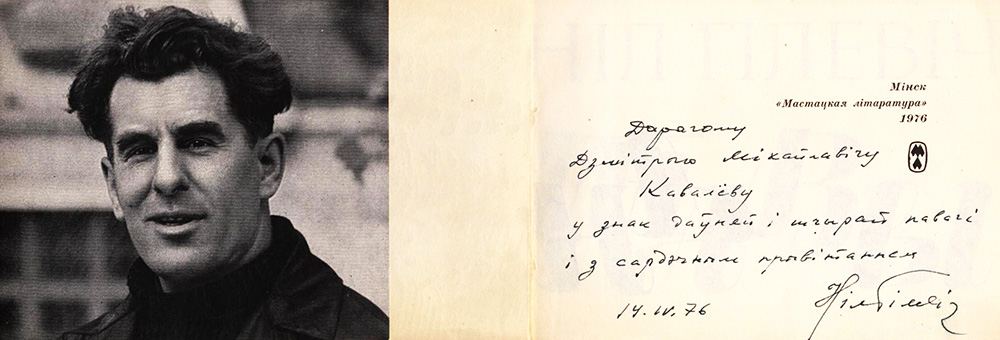 Мінск
«Мастацкая літаратура»
1976
Дарагому
Дзмітрыю Міхайлавічу
Кавалёву
у знак даўняй і шчырай павагі
і з сардэчным прывітаннем
Ніл Гілевіч
14.IV.76